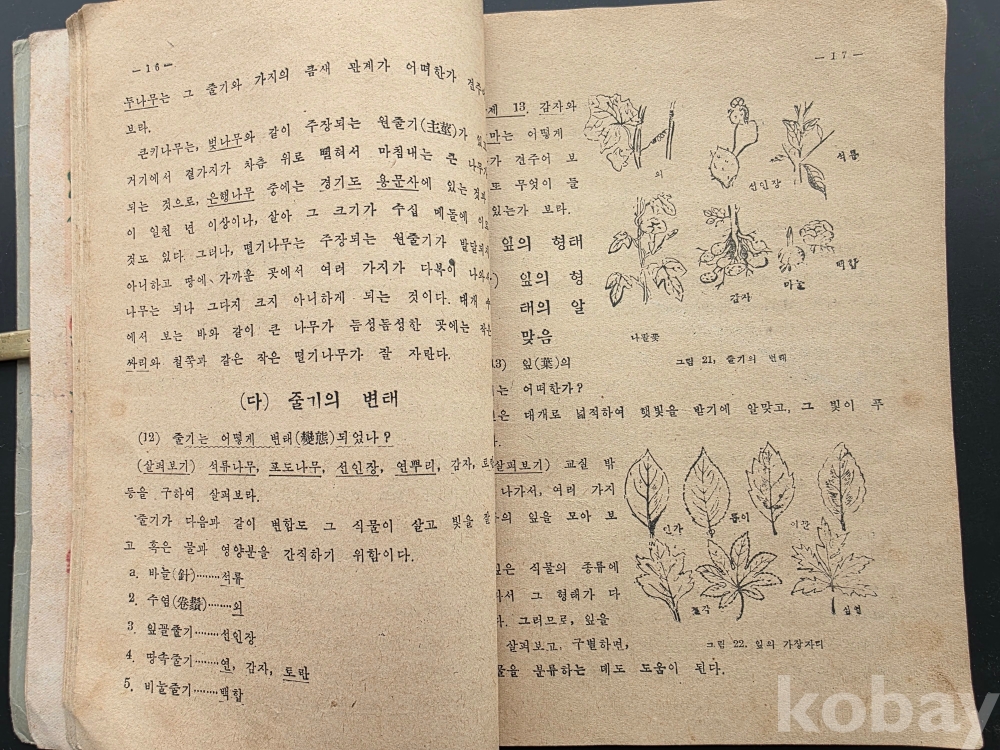 —16—
두나무는 그 줄기와 가지의 름새 관계가 어떠한가 견주어
브라.
큰키나무는, 벚나무와 같이 주장되는 원줄기(主莖)가 있고
거기에서 곁가지가 차츰 위로 뻗혀서 마침내는 큰 나무가
되는 것으로, 은행나무 중에는 경기도 용문사에 있는 것과
이 일천 년 이상이나, 살아 그 크기가 수십 메돌에 이르
것도 있다. 그러나, 떨기나무는 주장되는 원줄기가 발달되지
아니하고 땅에 가까운 곳에서 여러 가지가 다복이 나와서
나무는 되나 그다지 크지 아니하게 되는 것이다. 대개
에서 보는 바와 같이 큰 나무가 듬성듬성한 곳에는 작은
싸리와 철쭉과 같은 작은 떨기나무가 잘 자란다.
(다) 줄기의 변태
(12) 줄기는 어떻게 변태(變態)되었나?
(살펴보기) 석류나무, 포도나무, 선인장, 연뿌리, 감자, 토란
등을 구하여 살펴보라.
줄기가 다음과 같이 변함도 그 식물이 살고 빛을 잘
고 혹은 물과 영양분을 간직하기 위함이다.
a. 바늘(針)……석류
2. 수염(卷鬚)……외
3. 잎꼴줄기……선인장
4. 땅속줄기……연, 감자, 토란
5. 비늘줄기……백합
—17—
제 13. 감자와
만는 어떻게
가 견주어 보
또 무엇이 들
있는가 보라.
잎의 형태
잎의 형
태의 알
맞음
외
선인장
석류
나팔꽃
감자
마늘
백합
그림 21, 줄기의 변태
3) 잎(葉)의
는 어떠한가?
은 대개로 넓적하여 햇빛을 받기에 알맞고, 그 빛이 푸
다.
살펴보기) 교실 밖
나가서, 여러 가지
의 잎을 모아 보
은 식물의 종류에
라서 그 형태가 다
다. 그러므로, 잎을
살펴보고, 구별하면,
물을 분류하는 데도 도움이 된다.
톱이
그림 22. 잎의 가장자리
kobay